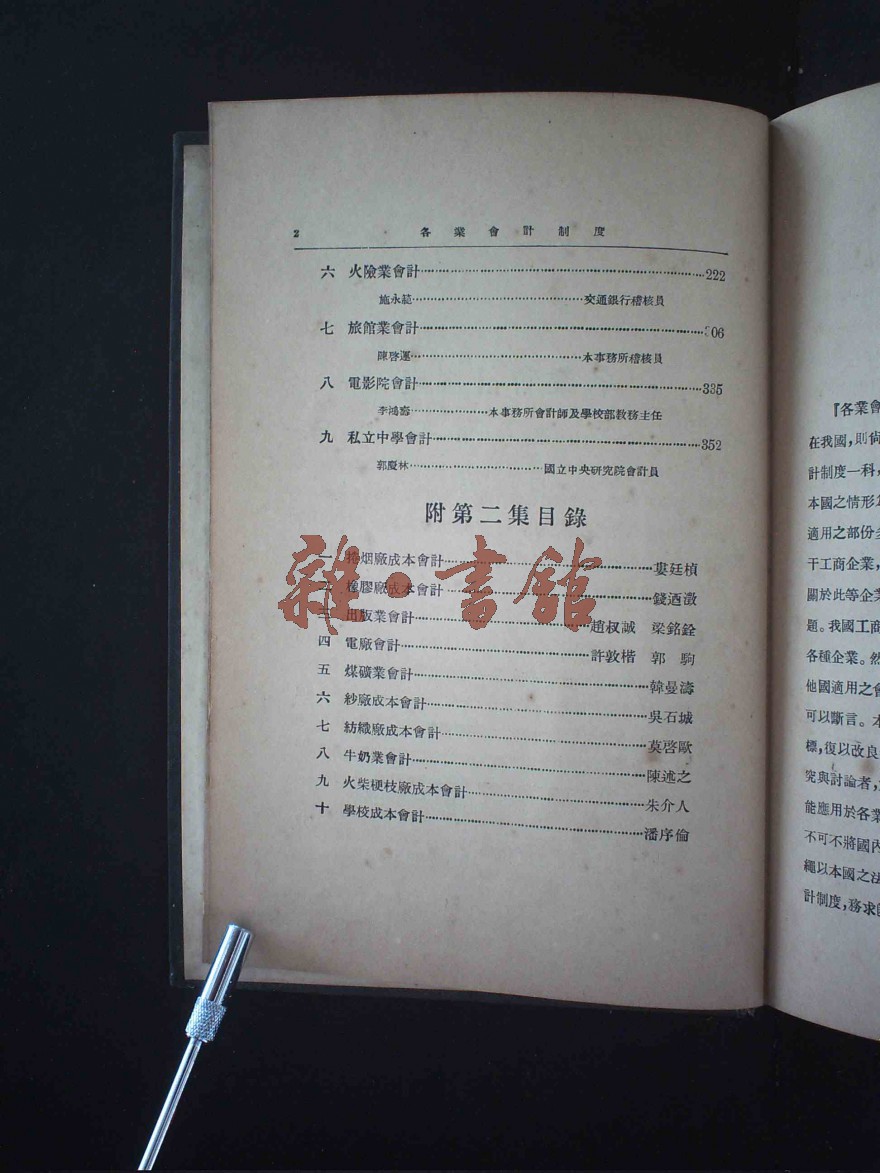 2 各業會計制度
六 火險業會計……222
施永……交通銀行稽核員
七 旅館業會計……306
陳啓運……本事務所稽核員
八 電影院會計……335
李鴻壽……本事務所會計師及學校部教務主任
九 私立中學會計……352
郭慶林……國立中央研究院會計員
附第二集目錄
一 捲烟廠成本會計……婁廷楨
二 橡膠廠成本會計……錢迺澂
三 出版業會計……趙叔誠 梁銘銓
四 電廠會計……許敦楷 郭駒
五 煤礦業會計……韓曼濤
六 紗廠成本會計……吳石城
七 紡織廠成本會計……莫啓歐
八 牛奶業會計……陳述之
九 火柴梗枝廠成本會計……朱介人
十 學校成本會計……潘序倫
雜·書館
『各業會
在我國,則尙
計制度一科,
本國之情形
適用之部份
干工商企業,
關於此等企業
題。我國工商
各種企業。然
他國適用之會
可以斷言。本
標,復以改良
究與討論者,
能應用於各業
不可不將國內
繩以本國之法
計制度,務求